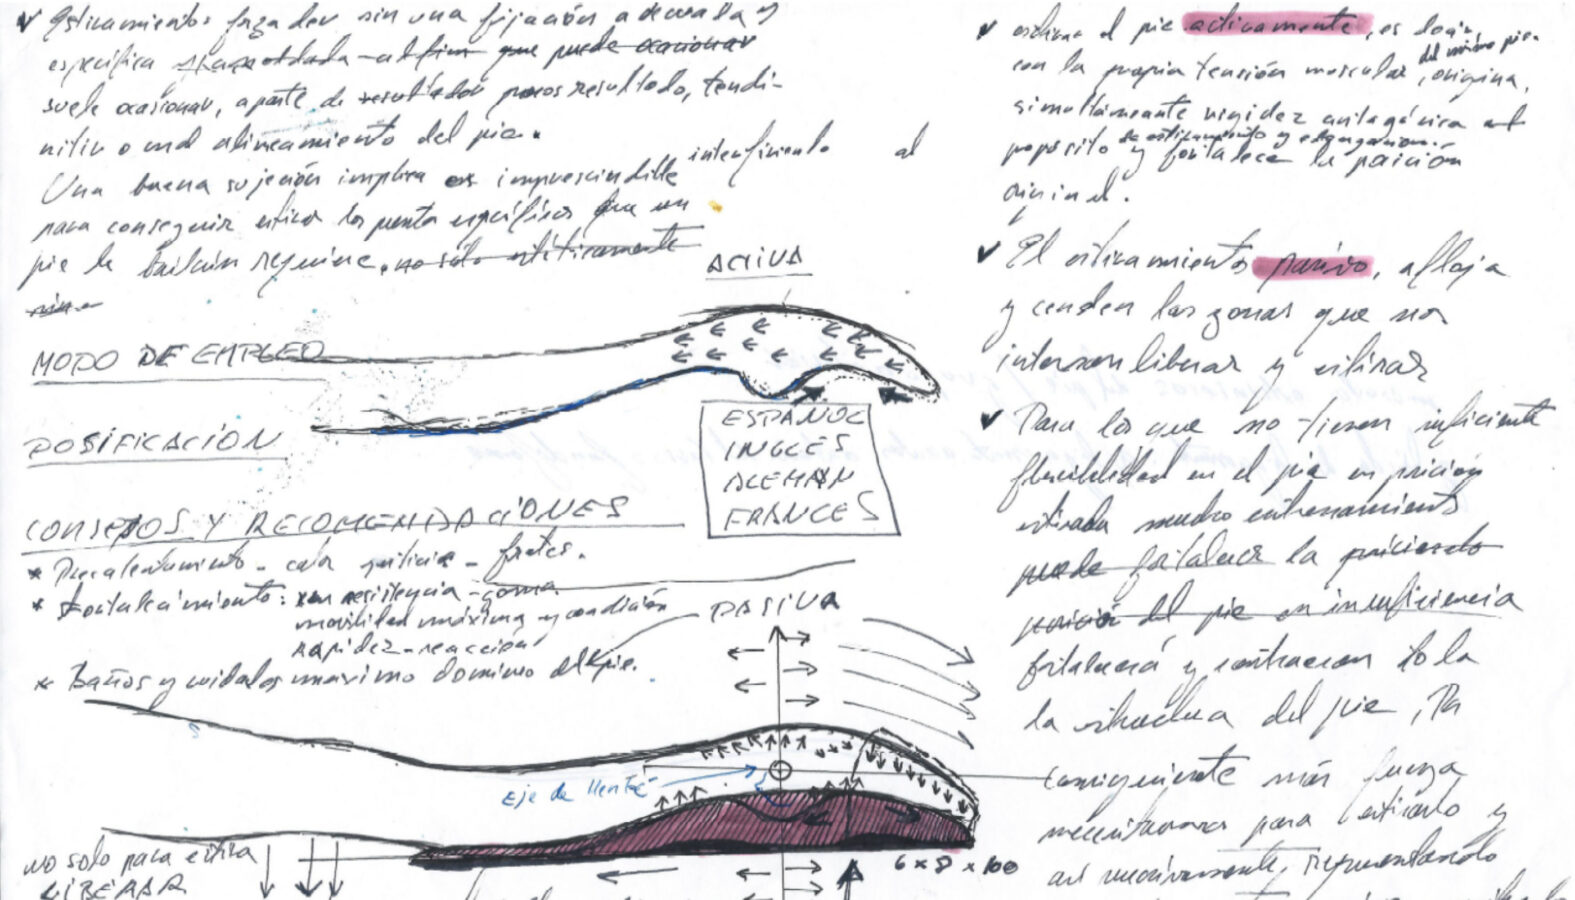 ✓ Estiramiento: forzado sin una fijación adecuada y
específica que puede ocasionar
suele ocasionar, aparte de pocos resultado, tendi-
nitis o mal alineamiento del pie.
interfiriendo al
Una buena sujeción implica es imprescindible
para conseguir estirar los puntos específicos que un
pie de bailarín requiere. no sólo estéticamente
MODO DE EMPLEO
DOSIFICACIÓN
CONSEJOS Y RECOMENDACIONES
* Precalentamiento - calor - frotes.
* Fortalecimiento: resistencia - goma
movilidad máxima y condición
rapidez - reacción
* Baños y cuidados máximo dominio del pie.
ACTIVA
ESPAÑOL
INGLES
ALEMÁN
FRANCES
PASIVA
Eje de
no solo para estira
LIBERAR
6 x 8 x 100
✓ estirar el pie activamente, es decir
del mismo pie
con la propia tensión muscular, origina,
simultáneamente rigidez antagónica al
de estiramiento y
propósito y fortalece la posición
original.
✓ El estiramiento pasivo, afloja
y las zonas que nos
interesan liberar y estirar
✓ Para los que no tienen suficiente
flexibilidad en el pie en posición
estirada mucho entrenamiento
puede fortalecer la
posición del pie en insuficiencia
fortalecerá y toda
la estructura del pie,
consiguiente más fuerza
necesitaremos para estirarlo y
así sucesivamente,